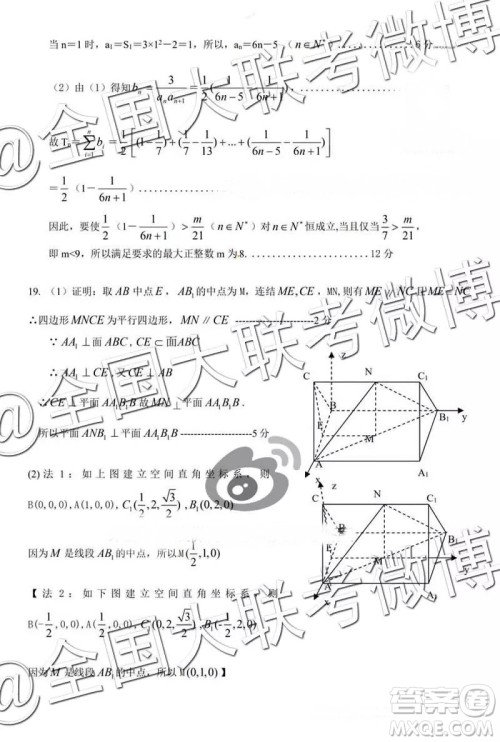 当 n＝1 时，a₁＝S₁＝3×1²－2＝1，所以，aₙ＝6n－5 （n∈N*）6分
（2）由（1）得知 bₙ＝3/(aₙaₙ₊₁)＝1/2(1/(6n－5)－1/(6n＋1))
故 Tₙ＝∑ᵢ₌₁ⁿ bᵢ＝1/2[(1－1/7)＋(1/7－1/13)＋...＋(1/(6n－5)－1/(6n＋1))]
＝1/2（1－1/(6n＋1)）
因此，要使 1/2（1－1/(6n＋1)）＞m/21（n∈N*）对 n∈N* 恒成立,当且仅当 3/7＞m/21,
即 m<9，所以满足要求的最大正整数 m 为 8. 12 分
19.（1）证明：取 AB 中点 E， AB₁ 的中点为 M，连结 ME,CE，MN,则有 ME∥NC 且 ME＝NC
∴四边形 MNCE 为平行四边形， MN∥CE 2分
∵ AA₁⊥面ABC，CE⊂面ABC
∴ AA₁⊥CE，又 CE⊥AB
∴CE⊥平面 AA₁B₁B 故 MN⊥AA₁B₁B.
所以平面 ANB₁⊥平面 AA₁B₁B 5分
z
C N C₁
B M B₁ y
A A₁
x
(2) 法 1：如上图建立空间直角坐标系，则
B(0,0,0),A(1,0,0), C₁(1/2,2,√3/2),B₁(0,2,0)
因为 M 是线段 AB₁ 的中点，所以 M(1/2,1,0)
z
C N C₁
B B₁ y
A M A₁
x
【 法 2：如下图建立空间直角坐标系，则
B(-1/2,0,0),A(1/2,0,0), C₁(0,2,√3/2),B₁(-1/2,2,0)
因为 M 是线段 AB₁ 的中点，所以 M(0,1,0) 】
@全国大联考微博
@全国大联考微博
@全国大联考微博
答案圈
MXQE.COM